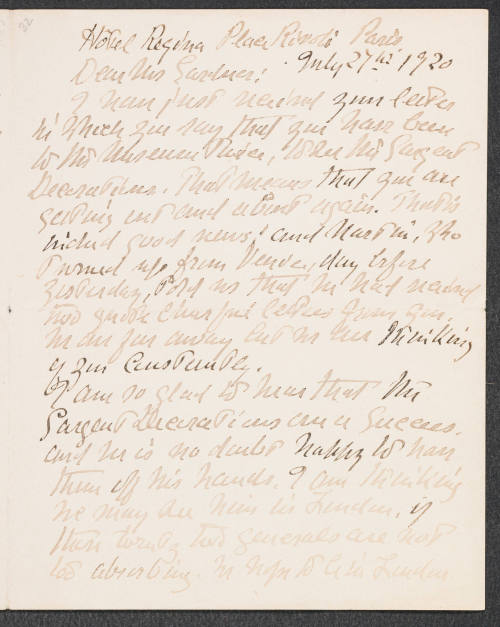 32
Hôtel Regina Place Rivoli Paris
July 27th 1920
Dear Mrs Gardner:
I have just received your letter
in which you say that you have been
to the Museum twice, to see the Sargent
Decorations. That means that you are
getting out and about again. That is
indeed good news! and Martin, who
turned up from Venice, day before
yesterday, told us that he had received
two quite cheerful letters from you.
We are far away but we are thinking
of you constantly.
I am so glad to hear that the
Sargent Decorations are a success.
and he is no doubt happy to have
them off his hands. I am thinking
we may see him in London, if
those twenty two generals are not
too absorbing. We hope to be in London